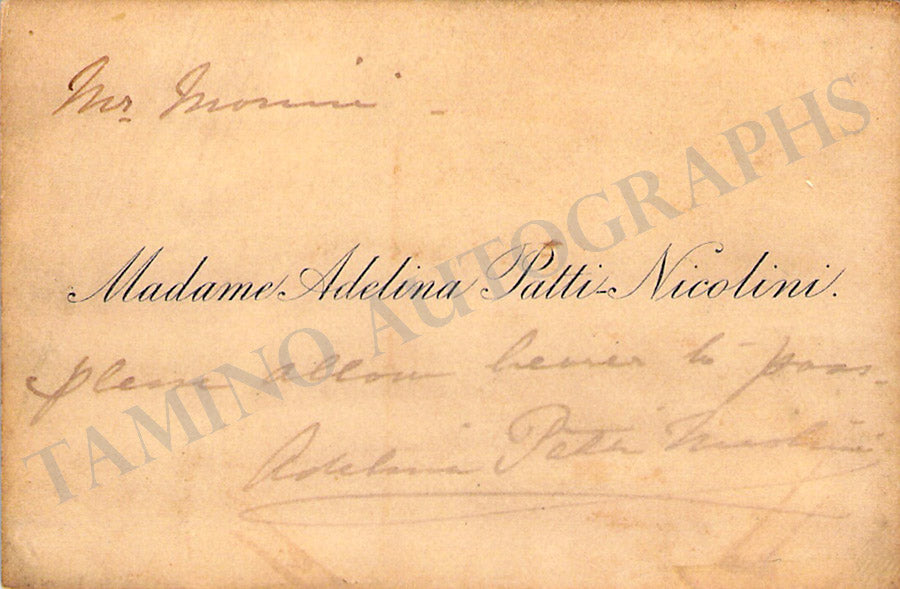 Mr. Morini -
Madame Adelina Patti-Nicolini.
please allow bearer to pass.
Adelina Patti Nicolini
TAMINO AUTOGRAPHS